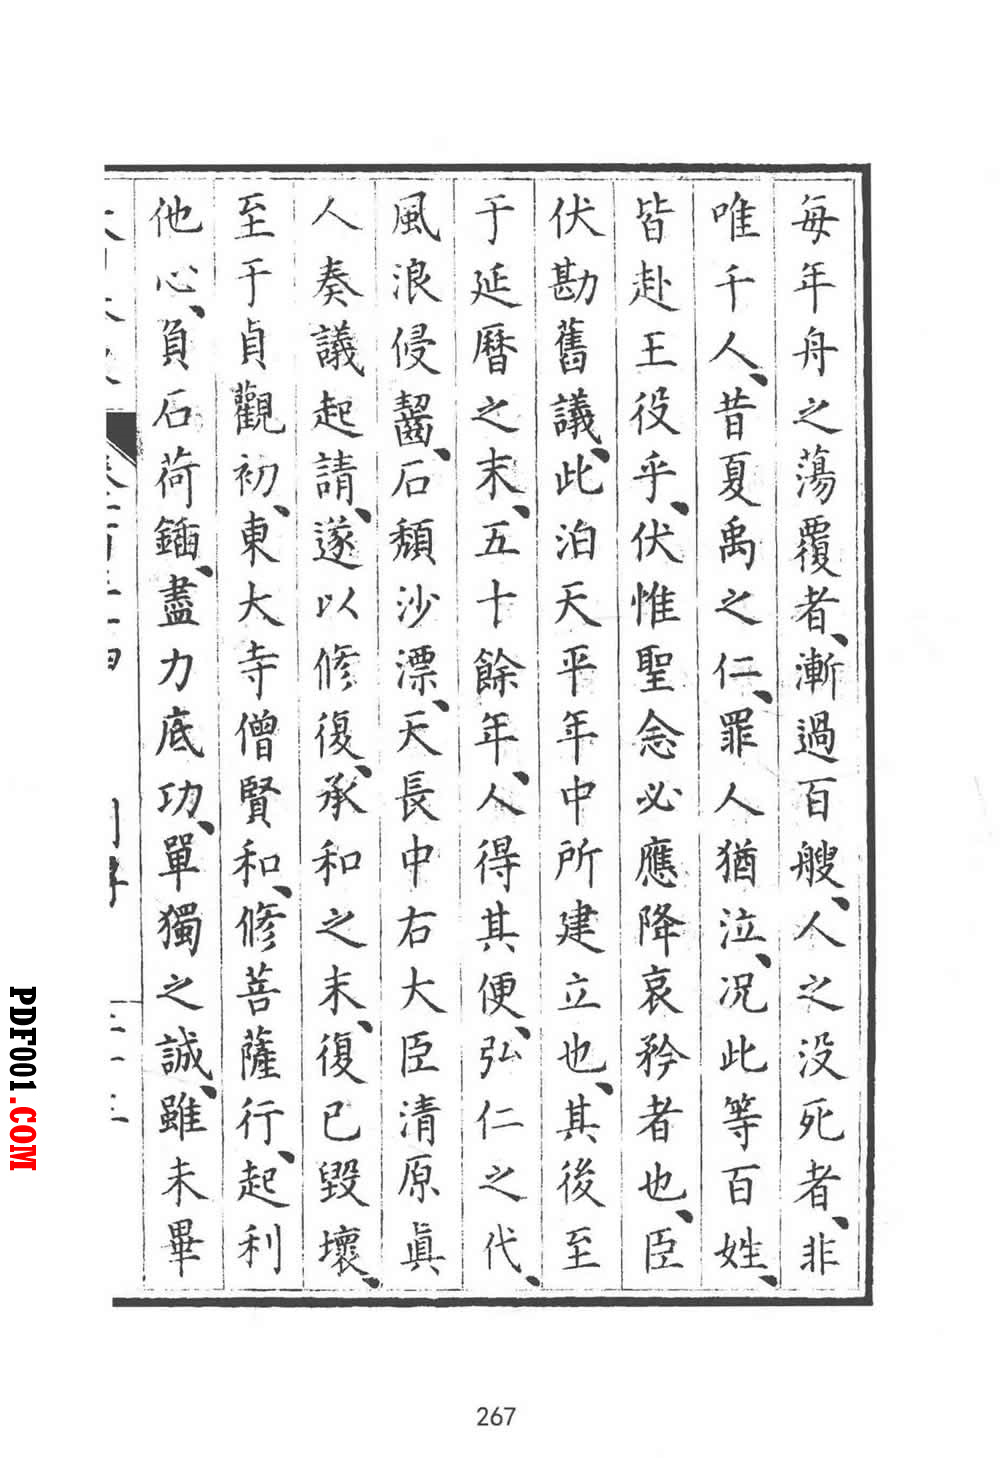 每年舟之蕩覆者、漸過百艘、人之没死者、非
唯千人、昔夏禹之仁、罪人猶泣、況此等百姓、
皆赴王役乎、伏惟聖念必應降哀矜者也、臣
伏勘舊議、此泊天平年中所建立也、其後至
于延曆之末、五十餘年、人得其便、弘仁之代、
風浪侵齧、石頽沙漂、天長中右大臣清原眞
人奏議起請、遂以修復、承和之末、復已毀壞、
至于貞觀初、東大寺僧賢和、修菩薩行、起利
他心、負石荷鍤、盡力底功、單獨之誠、雖未畢
267
PDF001.COM